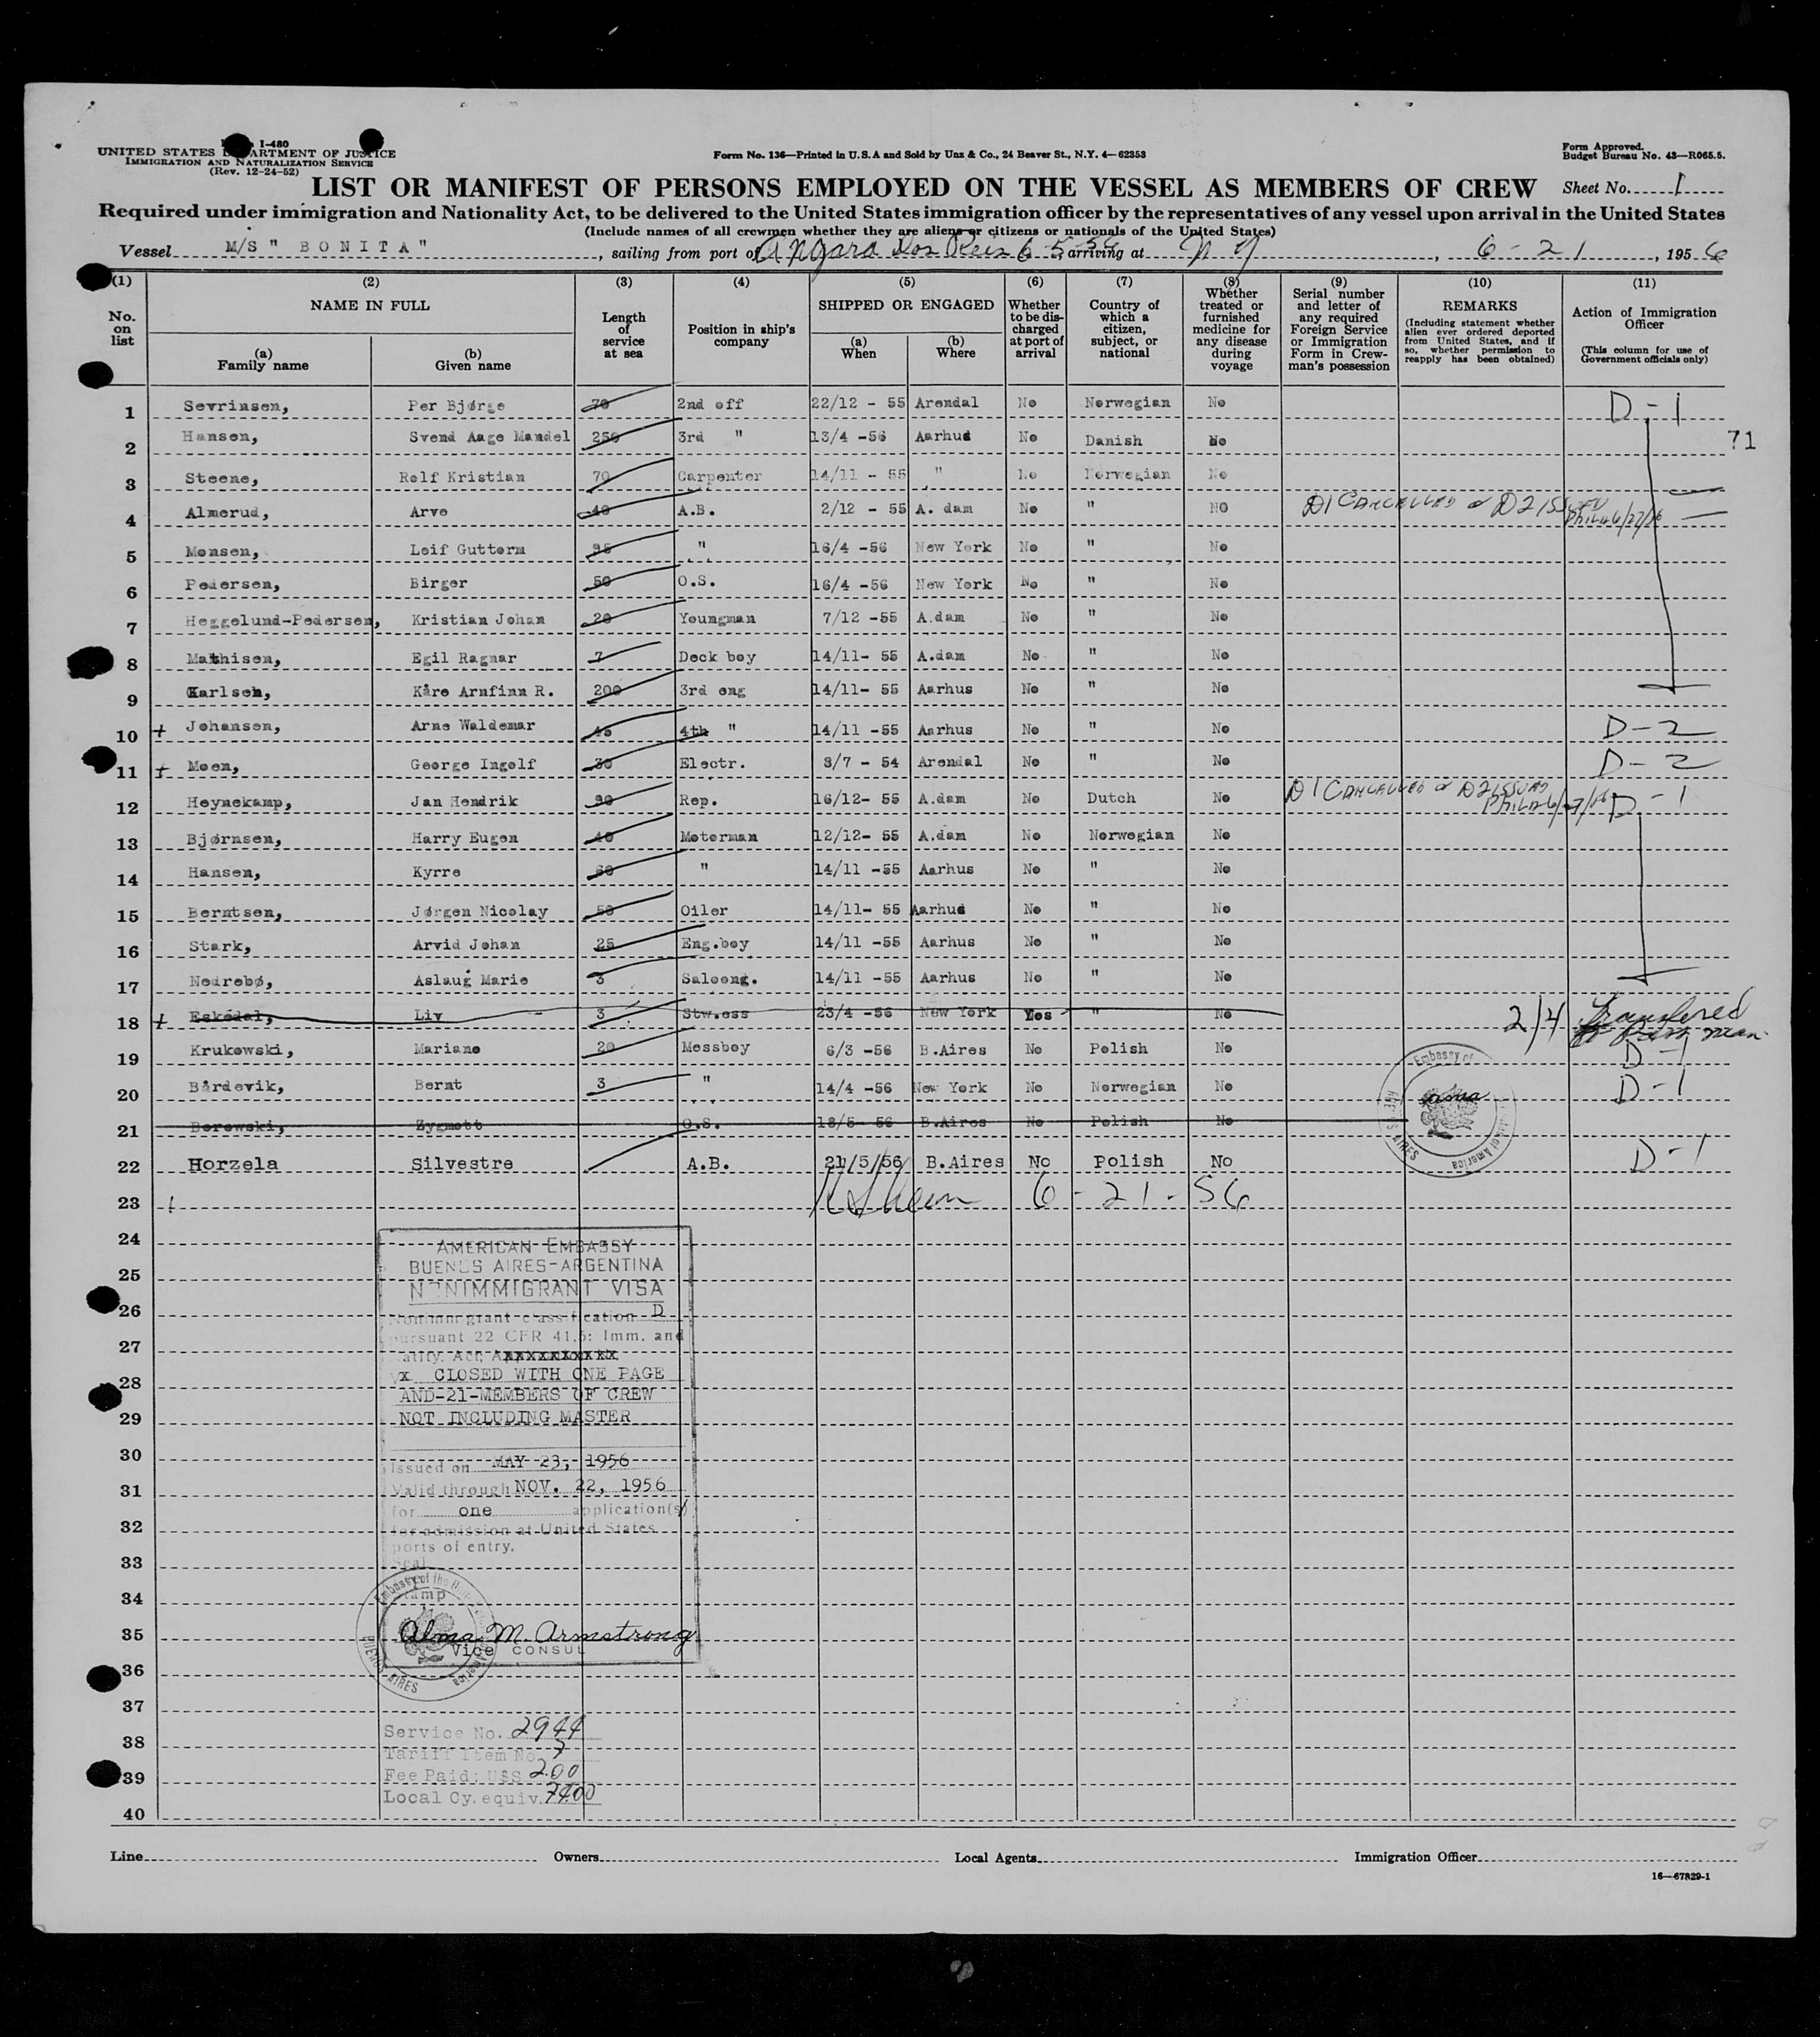 I-480
UNITED STATES DEPARTMENT OF JUSTICE
IMMIGRATION AND NATURALIZATION SERVICE
(Rev. 12-24-52)
Form No. 136—Printed in U.S.A and Sold by Unz & Co., 24 Beaver St., N.Y. 4—62353
Form Approved.
Budget Bureau No. 43—R065.5.
LIST OR MANIFEST OF PERSONS EMPLOYED ON THE VESSEL AS MEMBERS OF CREW
Sheet No. 1
Required under immigration and Nationality Act, to be delivered to the United States immigration officer by the representatives of any vessel upon arrival in the United States
(Include names of all crewmen whether they are aliens or citizens or nationals of the United States)
Vessel M/S " BONITA", sailing from port of Angara Dos Reis 6-5-56 arriving at N Y, 6-21, 1956
(1) (2) (3) (4) (5) (6) (7) (8) (9) (10) (11)
No. on list
NAME IN FULL
(a) Family name
(b) Given name
Length of service at sea
Position in ship's company
SHIPPED OR ENGAGED
(a) When
(b) Where
Whether to be discharged at port of arrival
Country of which a citizen, subject, or national
Whether treated or furnished medicine for any disease during voyage
Serial number and letter of any required Foreign Service or Immigration Form in Crewman's possession
REMARKS
(Including statement whether alien ever ordered deported from United States, and if so, whether permission to reapply has been obtained)
Action of Immigration Officer
(This column for use of Government officials only)
1 Sevrinsen, Per Bjørge 70 2nd off 22/12 - 55 Arendal No Norwegian No D-1
2 Hansen, Svend Aage Mandel 250 3rd " 13/4 -56 Aarhud No Danish No
71
3 Steene, Rolf Kristian 70 Carpenter 14/11 - 55 " No Norwegian No
4 Almerud, Arve 40 A.B. 2/12 - 55 A. dam No " NO D1 CANCELLED & D2 ISSUED PHILA 6/27/56
5 Monsen, Leif Gutterm 95 " 16/4 -56 New York No " No
6 Pedersen, Birger 50 O.S. 16/4 -56 New York No " No
7 Heggelund-Pedersen, Kristian Johan 20 Youngman 7/12 -55 A.dam No " No
8 Mathisen, Egil Ragnar 7 Deck boy 14/11- 55 A.dam No " No
9 Karlsen, Kåre Arnfinn R. 200 3rd eng 14/11- 55 Aarhus No " No
10 + Johansen, Arne Waldemar 45 4th " 14/11 -55 Aarhus No " No D-2
11 + Moen, George Ingolf 30 Electr. 8/7 - 54 Arendal No " No D-2
12 Heynekamp, Jan Hendrik 90 Rep. 16/12- 55 A.dam No Dutch No D1 CANCELLED & D2 ISSUED PHILA 6/27/56 D-1
13 Bjørnsen, Harry Eugen 40 Moterman 12/12- 55 A.dam No Norwegian No
14 Hansen, Kyrre 60 " 14/11 -55 Aarhus No " No
15 Berntsen, Jørgen Nicolay 50 Oiler 14/11- 55 Aarhud No " No
16 Stark, Arvid Johan 25 Eng.boy 14/11 -55 Aarhus No " No
17 Nedrebø, Aslaug Marie 3 Saloong. 14/11 -55 Aarhus No " No
18 + Eskedal, Liv 3 Stw.ess 23/4 -56 New York Yes " No 2/4 Transfered to Pass man.
19 Krukowski, Mariano 20 Messboy 6/3 -56 B.Aires No Polish No D-1
20 Bårdevik, Bernt 3 " 14/4 -56 New York No Norwegian No D-1
21 Borowski, Zygmott O.S. 18/5- 56 B.Aires No Polish No
22 Horzela Silvestre A.B. 21/5/56 B.Aires No Polish No D-1
23 6-21-56
Embassy of
BUENOS AIRES
alma
24
AMERICAN EMBASSY
25
BUENOS AIRES-ARGENTINA
NONIMMIGRANT VISA
26
Nonimmigrant classification D
pursuant 22 CFR 41.5: Imm. and
27
Natity. Act, Axxxxxxxxxx
28
x CLOSED WITH ONE PAGE
AND-21-MEMBERS OF CREW
29
NOT INCLUDING MASTER
30
Issued on MAY 23, 1956
31
Valid through NOV. 22, 1956
for one application(s)
32
for admission at United States
ports of entry.
33
Seal
34
Stamp
35
Alma M. Armstrong
Vice CONSUL
36
Embassy of the
BUENOS AIRES
America
37
Service No. 2944
38
Tariff Item No. 7
39
Fee Paid: U$S 2.00
Local Cy. equiv. 74.00
40
Line Owners Local Agents Immigration Officer
16—67829-1